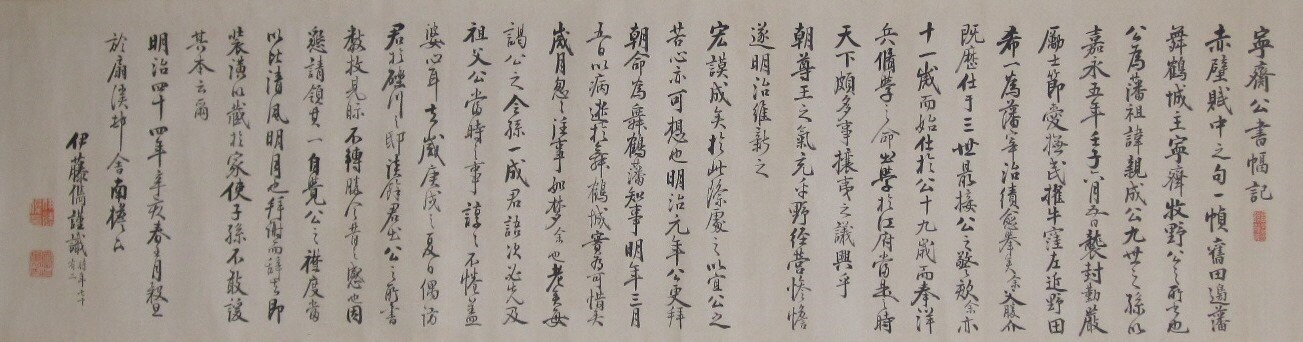 寧齋公書幅記
赤壁賦中之句一幀舊田邊藩
舞鶴城主寧齋牧野公之所書也
公為藩祖諱親成公九世之孫以
嘉永五年壬子六月 襲封勤嚴
勵士節愛撫民擢牛窪左近野田
希一為藩宰治績愈舉矣余
既歷仕于三世最接公之謦欬余亦
十一歲而始仕於公十九歲而奉洋
兵脩學之命出學於江府當此之時
天下頗多事攘夷之議興乎
朝尊王之氣充乎野經營慘憺
遂明治維新之
宏謨成矣於此際處之以宜公之
苦心亦可想也明治元年公更拜
朝命為舞鶴藩知事明年三月
五日以病逝於舞鶴城實為可惜矣
歲月忽々往事如夢余也老矣每
謁公之令孫一成君語次必先及
祖父公當時之事諄々不惓蓋
婆心耳去歲庚戌之夏日偶訪
君於礫川之邸
教授見眎不轉勝今昔之感也因
懇請領其一自覺公之襟度當
以比清風明月也拜謝而辭去即
裝潢以藏於家使子孫不敢諼
其本云爾
明治四十四年辛亥春 月穀旦
於扇溪邨舍南
伊藤 謹識 時年六十有二